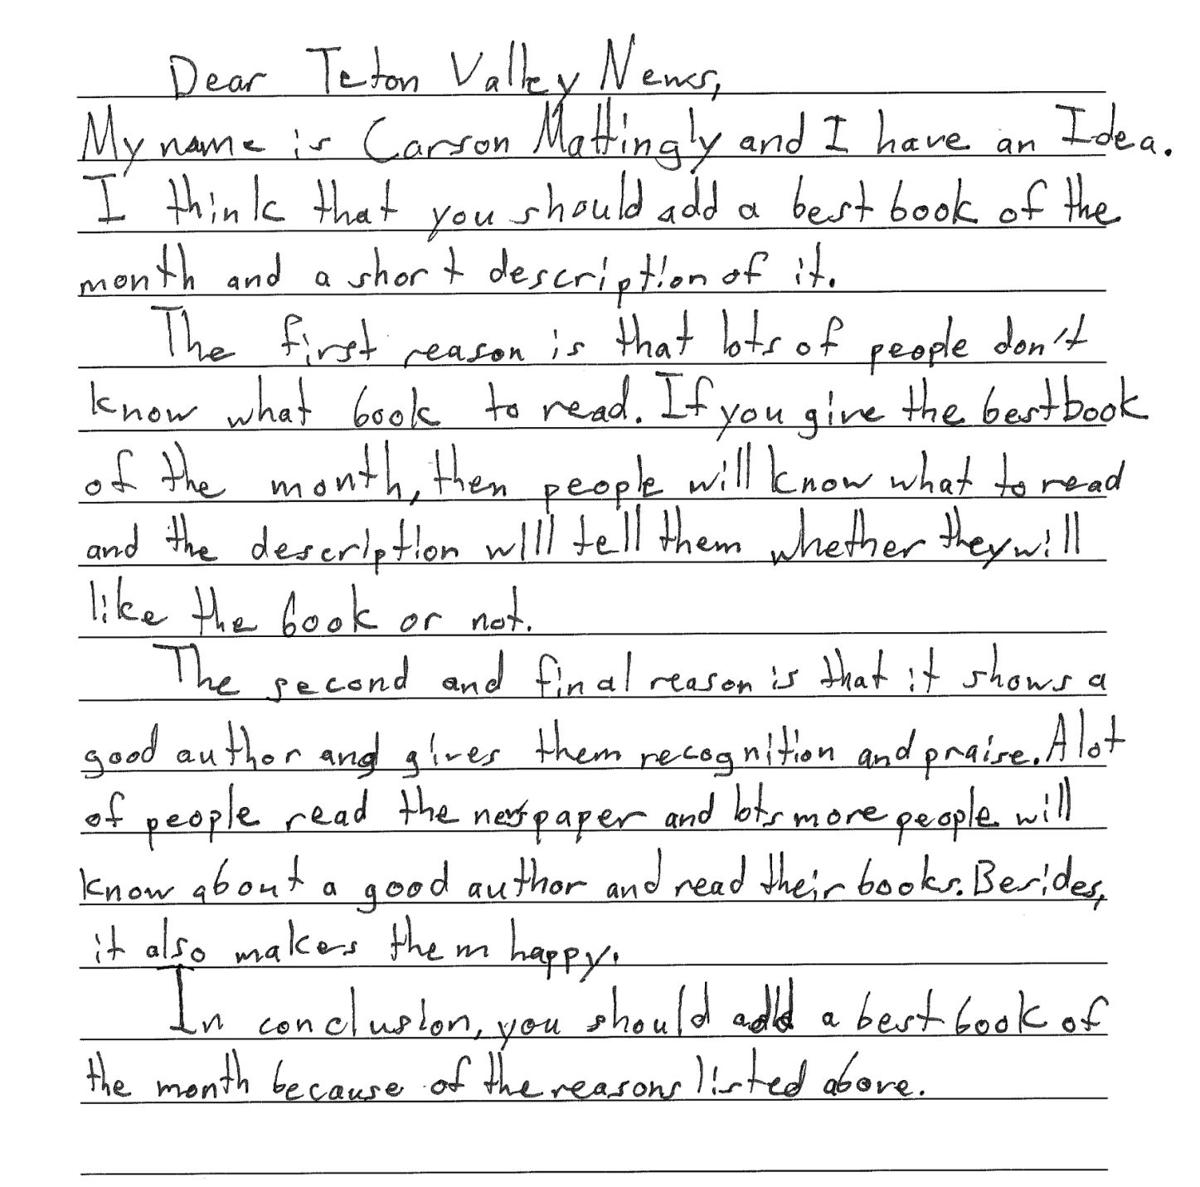 Dear Teton Valley News,
My name is Carson Mattingly and I have an Idea.
I think that you should add a best book of the
month and a short description of it.
The first reason is that lots of people don't
know what book to read. If you give the best book
of the month, then people will know what to read
and the description will tell them whether they will
like the book or not.
The second and final reason is that it shows a
good author and gives them recognition and praise. A lot
of people read the newspaper and lots more people will
know about a good author and read their books. Besides,
it also makes them happy.
In conclusion, you should add a best book of
the month because of the reasons listed above.